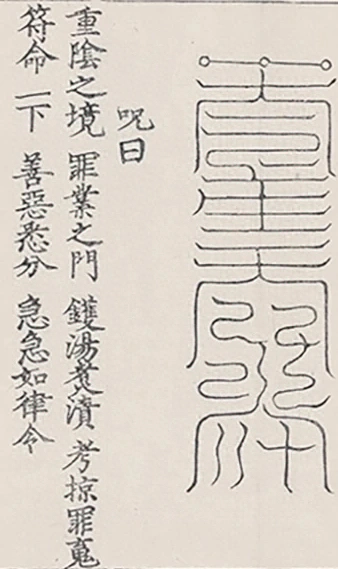 呪曰
重陰之境 罪業之門 鑊湯煮漬 考掠罪䰟
符命一下 善惡悉分 急急如律令